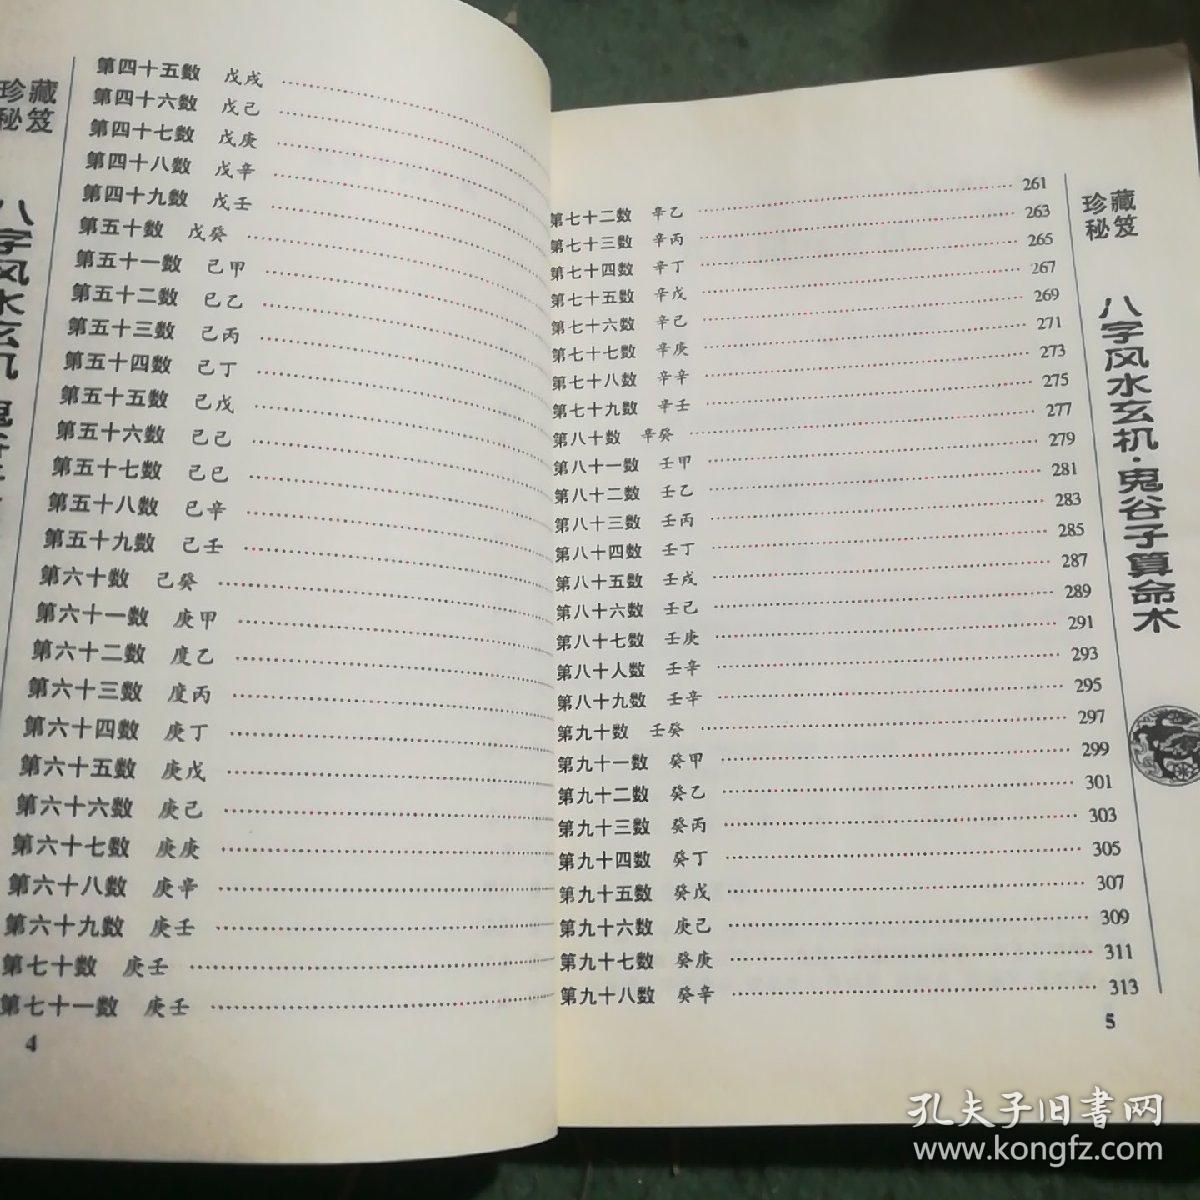 珍藏
秘笈
第四十五数 戊戌
第四十六数 戊己
第四十七数 戊庚
第四十八数 戊辛
第四十九数 戊壬
第五十数 戊癸
第五十一数 己甲
第五十二数 巳乙
第五十三数 己丙
第五十四数 己丁
第五十五数 己戊
第五十六数 己己
第五十七数 己巳
第五十八数 己辛
第五十九数 己壬
第六十数 己癸
第六十一数 庚甲
第六十二数 度乙
第六十三数 度丙
第六十四数 庚丁
第六十五数 庚戊
第六十六数 庚己
第六十七数 庚庚
第六十八数 庚辛
第六十九数 庚壬
第七十数 庚壬
第七十一数 庚壬
4
八字风水玄机
第七十二数 辛乙 261
第七十三数 辛丙 263
第七十四数 辛丁 265
第七十五数 辛戊 267
第七十六数 辛己 269
第七十七数 辛庚 271
第七十八数 辛辛 273
第七十九数 辛壬 275
第八十数 辛癸 277
第八十一数 壬甲 279
第八十二数 壬乙 281
第八十三数 壬丙 283
第八十四数 壬丁 285
第八十五数 壬戌 287
第八十六数 壬己 289
第八十七数 壬庚 291
第八十人数 壬辛 293
第八十九数 壬辛 295
第九十数 壬癸 297
第九十一数 癸甲 299
第九十二数 癸乙 301
第九十三数 癸丙 303
第九十四数 癸丁 305
第九十五数 癸戊 307
第九十六数 庚己 309
第九十七数 癸庚 311
第九十八数 癸辛 313
5
珍藏
秘笈
八字风水玄机·鬼谷子算命术
孔夫子旧书网
www.kongfz.com